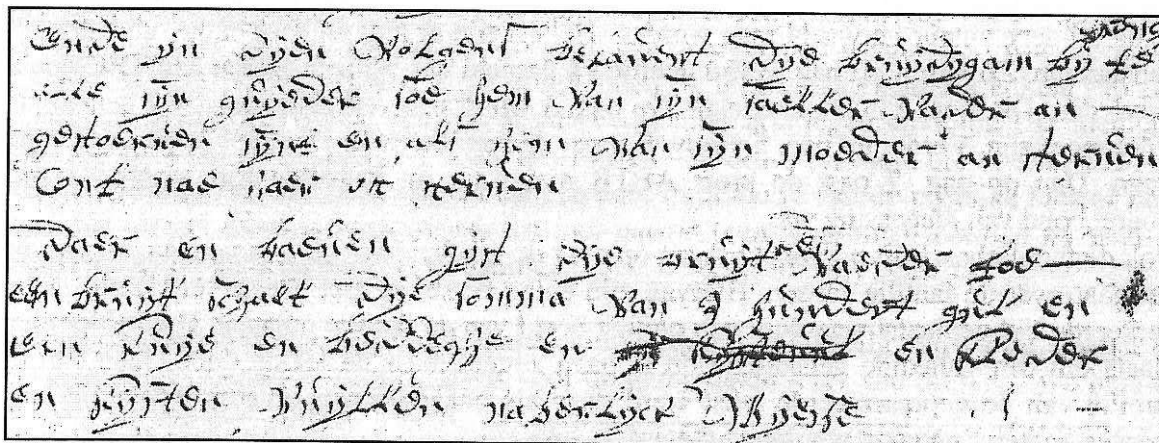 Ende yn dyen Volgent belavent dye bruydygam by te
alle syn guyeder soe hem Van syn saelker Vader an
gestoerven syn en als hem Van syn moeder an sterven
Comt nae haer ut sterven
Daer en baeven gyft dye bruyt Vaeder toe
een bruyt schalt dye somma Van hundert gul en
een kuye en beddeghe en en kleder
en kysten Vuyllen naberlyck Wyesse